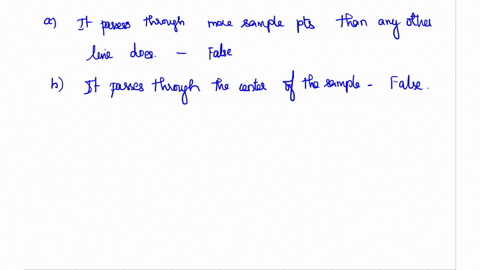 a) It passes through more sample pts than any other
line does. – False
b) It passes through the center of the sample – False.